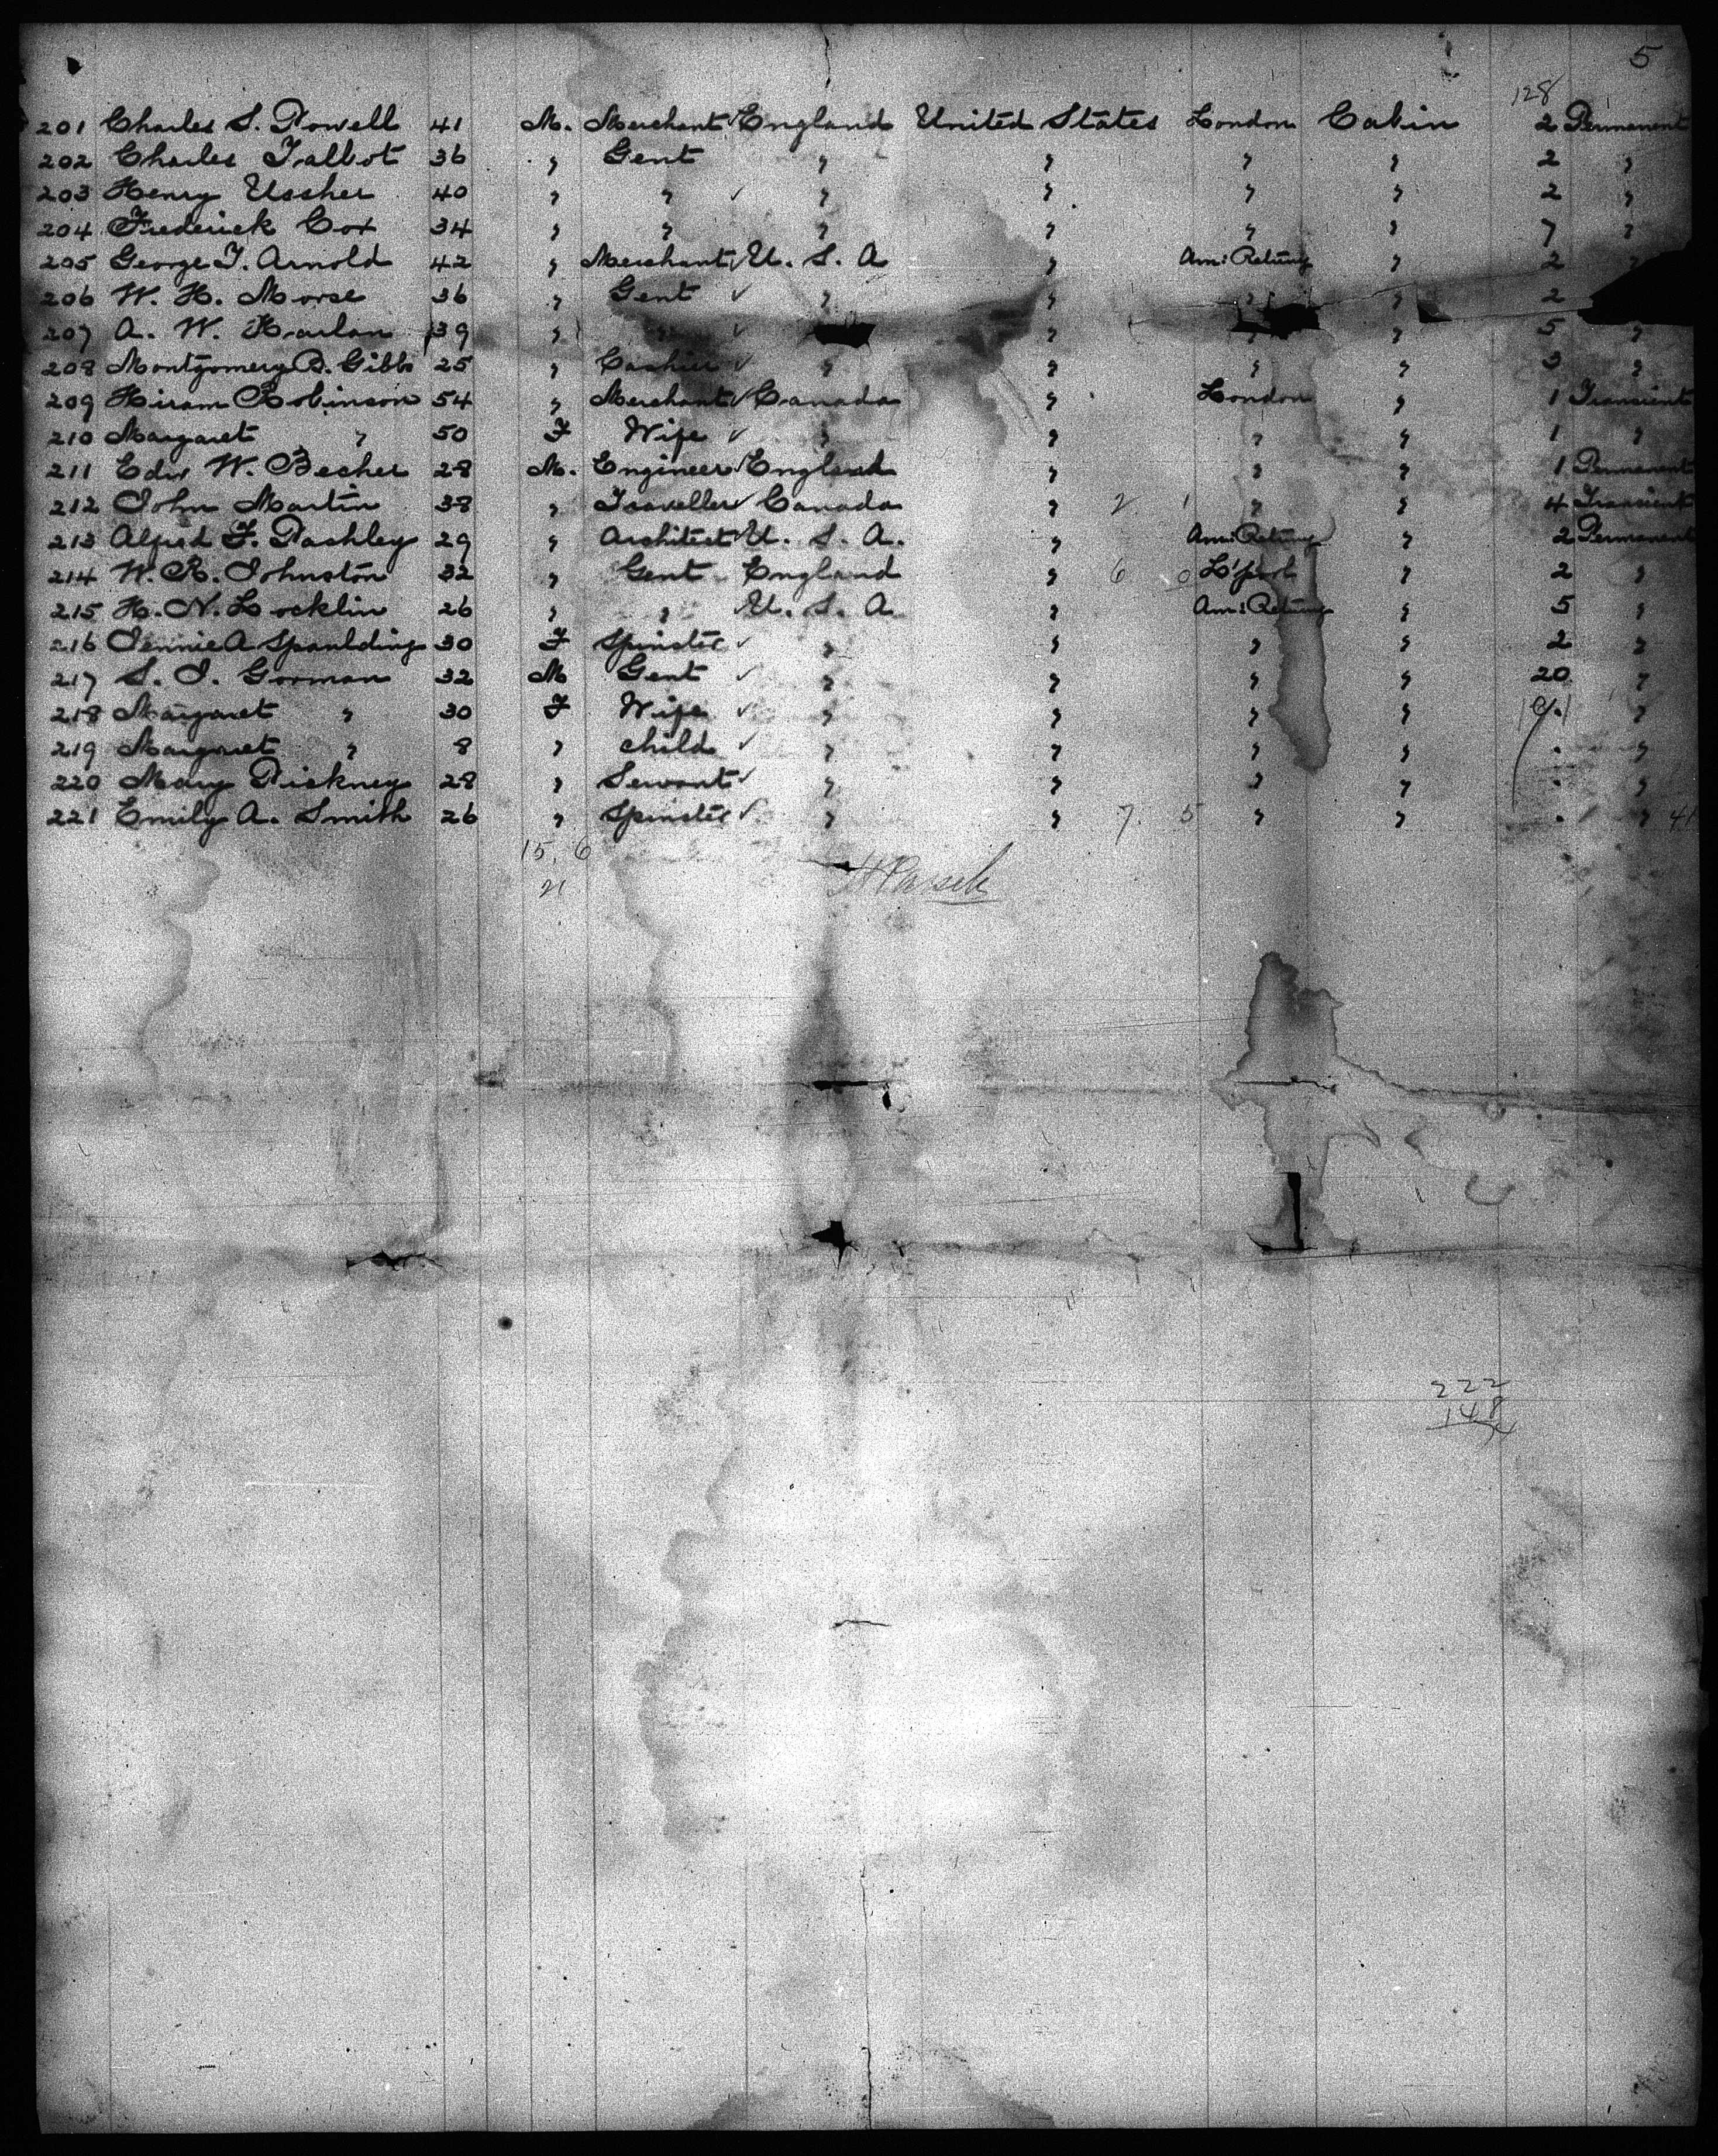 5
128
201 Charles S. Powell 41 M. Merchant England United States London Cabin 2 Permanent
202 Charles Talbot 36 " Gent " " " " 2 "
203 Henry Ussher 40 " " " " " " 2 "
204 Frederick Cox 34 " " " " " " 7 "
205 George T. Arnold 42 " Merchant U. S. A " Am: Retung " 2 "
206 W. H. Morse 36 " Gent " " " " 2
207 A. W. Harlan 39 " " " " " " 5 "
208 Montgomery B. Gibbs 25 " Cashier " " " " 3 "
209 Hiram Robinson 54 " Merchant Canada " London " 1 Transient
210 Margaret " 50 F Wife " " " " 1 "
211 Edw W. Becher 28 M. Engineer England " " " 1 Permanent
212 John Martin 38 " Traveller Canada " 2 1 " " 4 Transient
213 Alfred F. Pashley 29 " Architect U. S. A. " Am: Retung " 2 Permanent
214 W. R. Johnston 32 " Gent England " 6 0 L'pool " 2 "
215 H. N. Locklin 26 " " U. S. A " Am: Retung " 5 "
216 Jennie A Spaulding 30 F Spinster " " " " 2 "
217 S. J. Gorman 32 M Gent " " " " 20 "
218 Margaret " 30 F Wife " " " " "
219 Margaret " 8 " child " " " " . "
220 Mary Pickney 28 " Servant " " " " . "
221 Emily A. Smith 26 " Spinster " " 7. 5 " " . " 41
15, 6
21
222
148